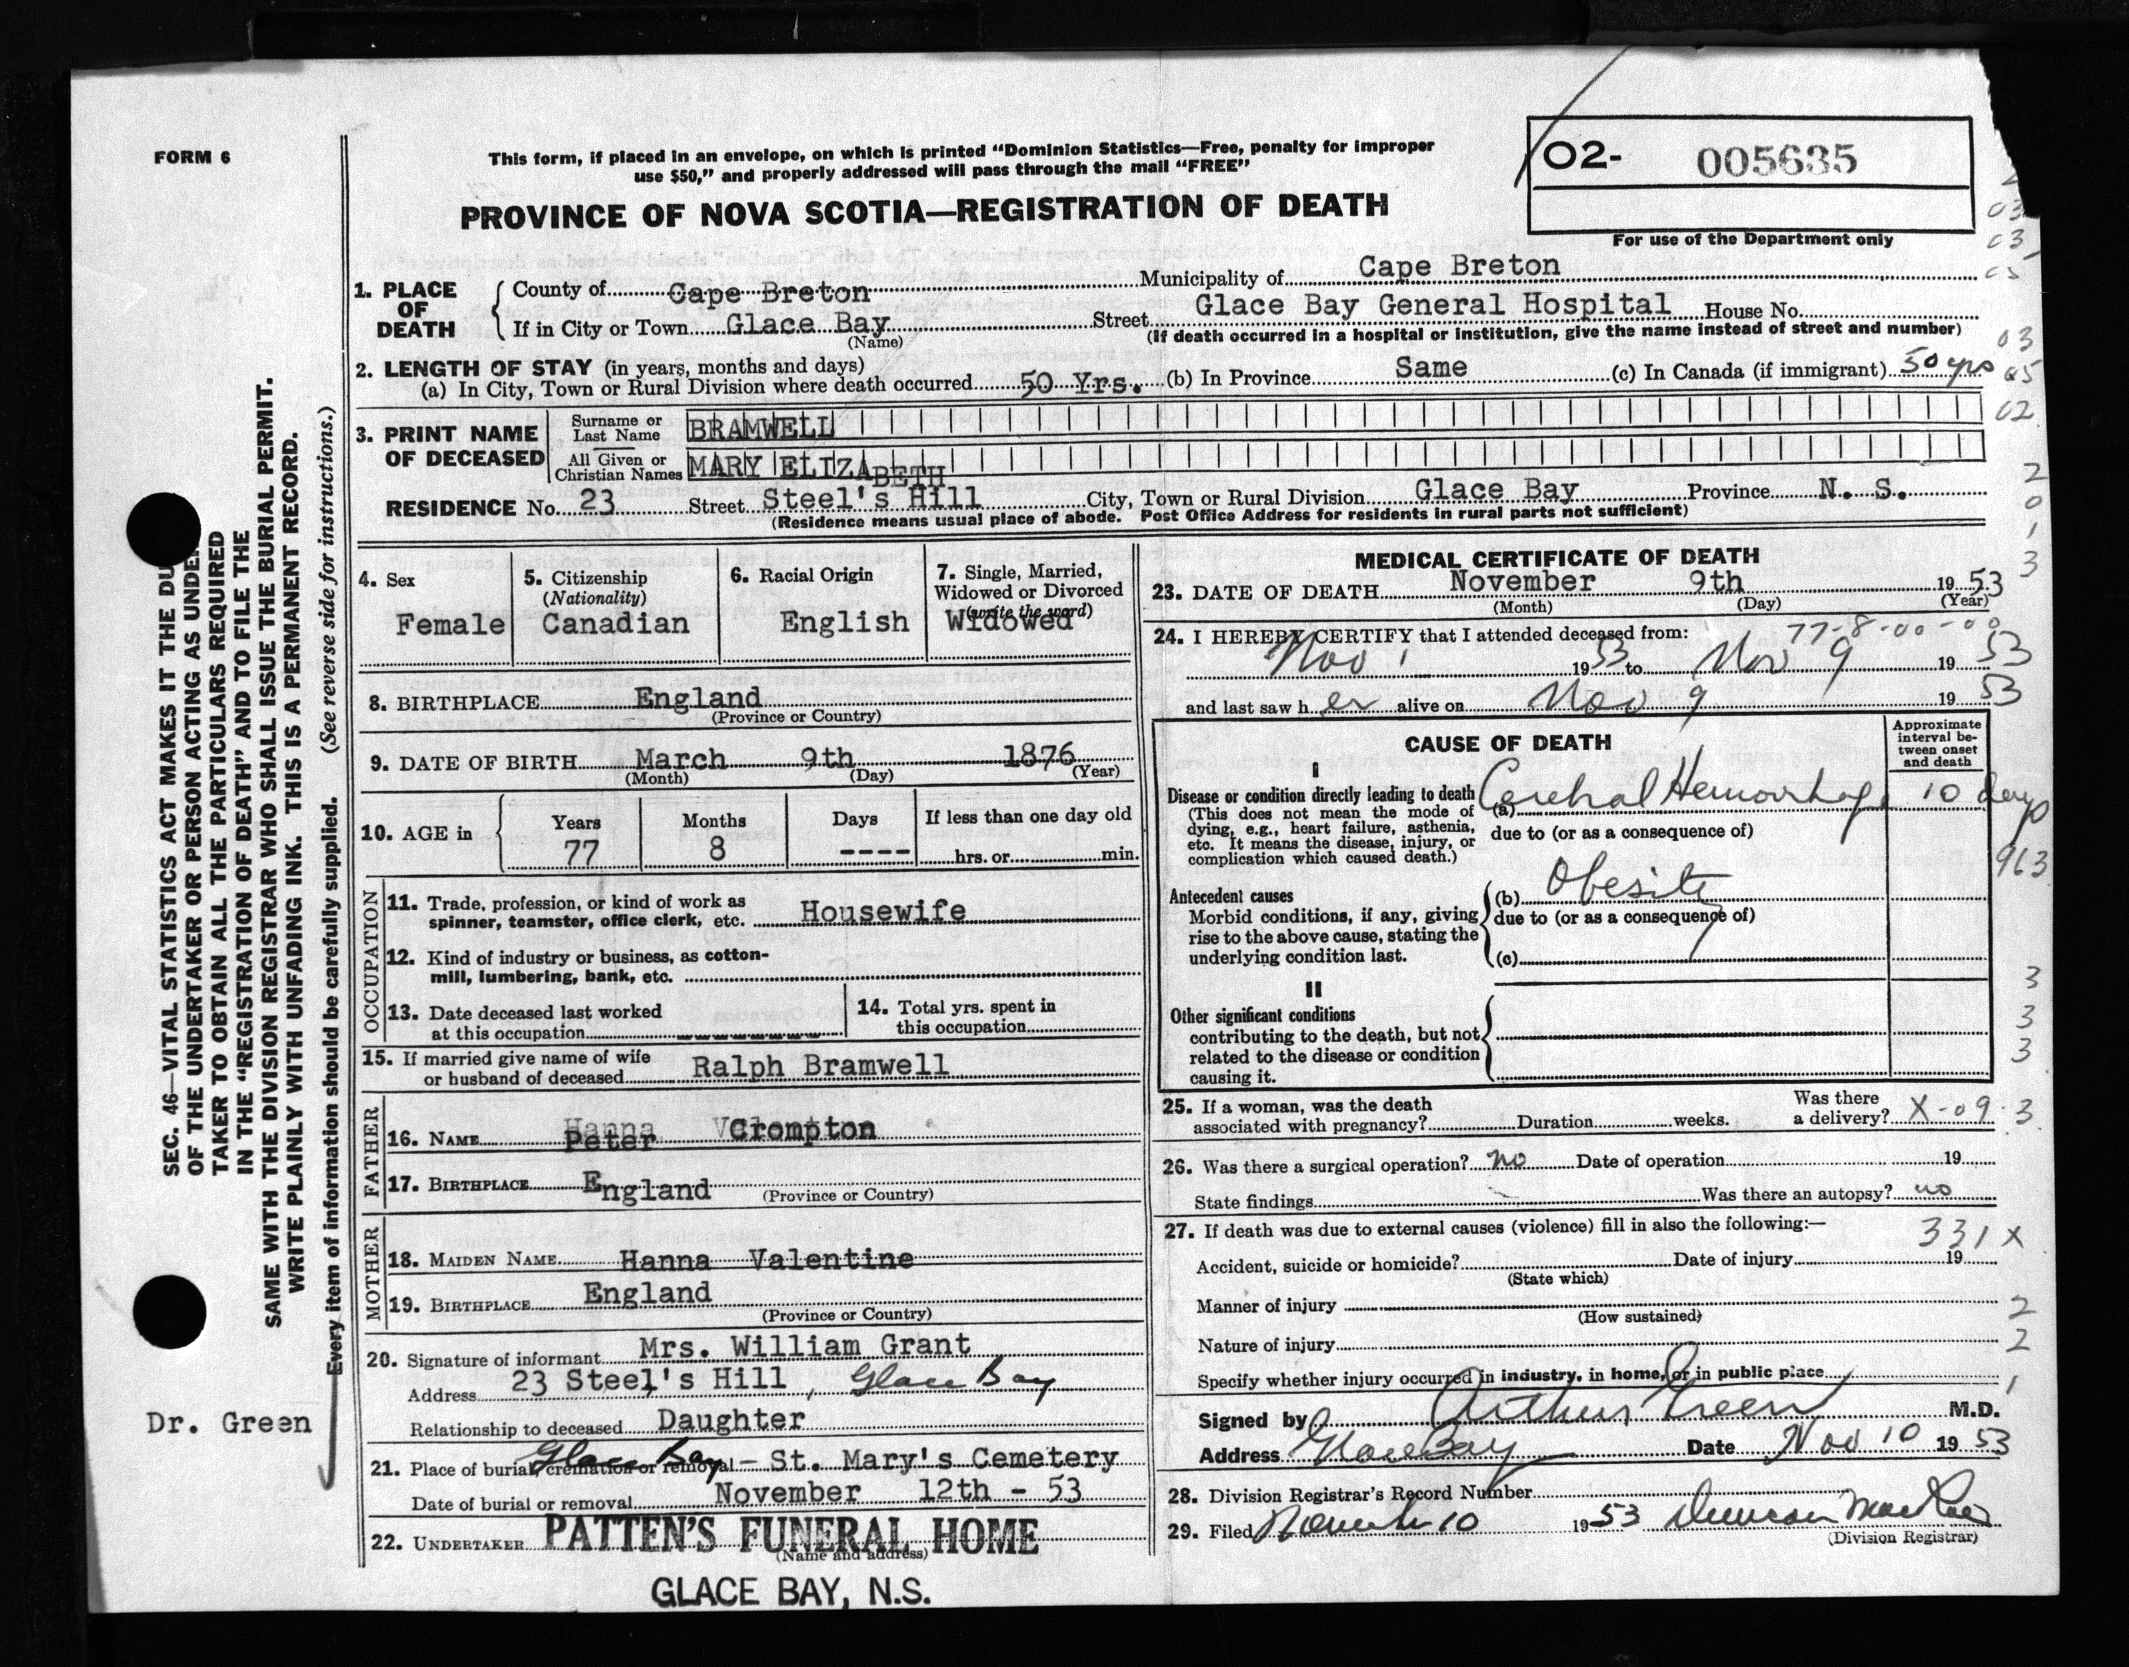 FORM 6
This form, if placed in an envelope, on which is printed "Dominion Statistics—Free, penalty for improper
use $50," and properly addressed will pass through the mail "FREE"
PROVINCE OF NOVA SCOTIA—REGISTRATION OF DEATH
02- 005635
For use of the Department only
1. PLACE OF DEATH
County of Cape Breton Municipality of Cape Breton
If in City or Town Glace Bay Street Glace Bay General Hospital House No.
(Name) (If death occurred in a hospital or institution, give the name instead of street and number)
2. LENGTH OF STAY (in years, months and days)
(a) In City, Town or Rural Division where death occurred 50 Yrs. (b) In Province Same (c) In Canada (if immigrant) 50 yrs
3. PRINT NAME OF DECEASED
Surname or Last Name BRAMWELL
All Given or Christian Names MARY ELIZABETH
RESIDENCE No. 23 Street Steel's Hill City, Town or Rural Division Glace Bay Province N. S.
(Residence means usual place of abode. Post Office Address for residents in rural parts not sufficient)
4. Sex
Female
5. Citizenship
(Nationality)
Canadian
6. Racial Origin
English
7. Single, Married,
Widowed or Divorced
(write the word)
Widowed
8. BIRTHPLACE England
(Province or Country)
9. DATE OF BIRTH March 9th 1876
(Month) (Day) (Year)
10. AGE in
Years Months Days If less than one day old
77 8 ---- hrs. or min.
OCCUPATION
11. Trade, profession, or kind of work as
spinner, teamster, office clerk, etc. Housewife
12. Kind of industry or business, as cotton-
mill, lumbering, bank, etc.
13. Date deceased last worked
at this occupation
14. Total yrs. spent in
this occupation
15. If married give name of wife
or husband of deceased Ralph Bramwell
FATHER
Hanna V
16. NAME Peter Crompton
17. BIRTHPLACE England
(Province or Country)
MOTHER
18. MAIDEN NAME Hanna Valentine
19. BIRTHPLACE England
(Province or Country)
20. Signature of informant Mrs. William Grant
Address 23 Steel's Hill, Glace Bay
Relationship to deceased Daughter
21. Place of burial, cremation or removal Glace Bay - St. Mary's Cemetery
Date of burial or removal November 12th - 53
22. UNDERTAKER PATTEN'S FUNERAL HOME
(Name and address)
GLACE BAY, N.S.
MEDICAL CERTIFICATE OF DEATH
23. DATE OF DEATH November 9th 1953
(Month) (Day) (Year)
77-8-00-00
24. I HEREBY CERTIFY that I attended deceased from:
Nov 1 1953 to Nov 9 1953
and last saw her alive on Nov 9 1953
CAUSE OF DEATH
Approximate
interval be-
tween onset
and death
I
Disease or condition directly leading to death
(This does not mean the mode of
dying, e.g., heart failure, asthenia,
etc. It means the disease, injury, or
complication which caused death.)
(a) Cerebral Hemorrhage 10 days
due to (or as a consequence of)
963
Antecedent causes
Morbid conditions, if any, giving
rise to the above cause, stating the
underlying condition last.
(b) Obesity
due to (or as a consequence of)
(c)
II
Other significant conditions
contributing to the death, but not
related to the disease or condition
causing it.
25. If a woman, was the death
associated with pregnancy? Duration weeks. Was there
a delivery? X-09.3
26. Was there a surgical operation? no Date of operation 19
State findings Was there an autopsy? no
27. If death was due to external causes (violence) fill in also the following:—
331 X
Accident, suicide or homicide? Date of injury 19
(State which)
Manner of injury
(How sustained)
Nature of injury
Specify whether injury occurred in industry, in home, or in public place
Signed by Arthur Green M.D.
Address Glace Bay Date Nov 10 1953
28. Division Registrar's Record Number
29. Filed November 10 1953 Duncan MacRae
(Division Registrar)
03
03
05
03
05
02
2
0
1
3
3
3
3
2
2
1
SEC. 46—VITAL STATISTICS ACT MAKES IT THE DU
OF THE UNDERTAKER OR PERSON ACTING AS UNDER
TAKER TO OBTAIN ALL THE PARTICULARS REQUIRED
IN THE "REGISTRATION OF DEATH" AND TO FILE THE
SAME WITH THE DIVISION REGISTRAR WHO SHALL ISSUE THE BURIAL PERMIT.
WRITE PLAINLY WITH UNFADING INK. THIS IS A PERMANENT RECORD.
Every item of information should be carefully supplied. (See reverse side for instructions.)
Dr. Green